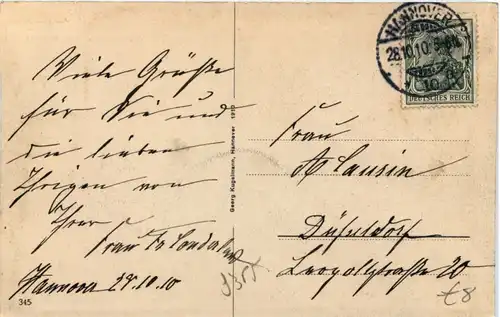 Viele Grüße
für Sie und
die lieben
Ihrigen von
Ihrer
Frau
Hannover 27.10.10
345
Georg Kugelmann, Hannover 1910
HANNOVER
28.10.10
DEUTSCHES REICH
Frau
Düsseldorf
Leopoldstraße 20
£8